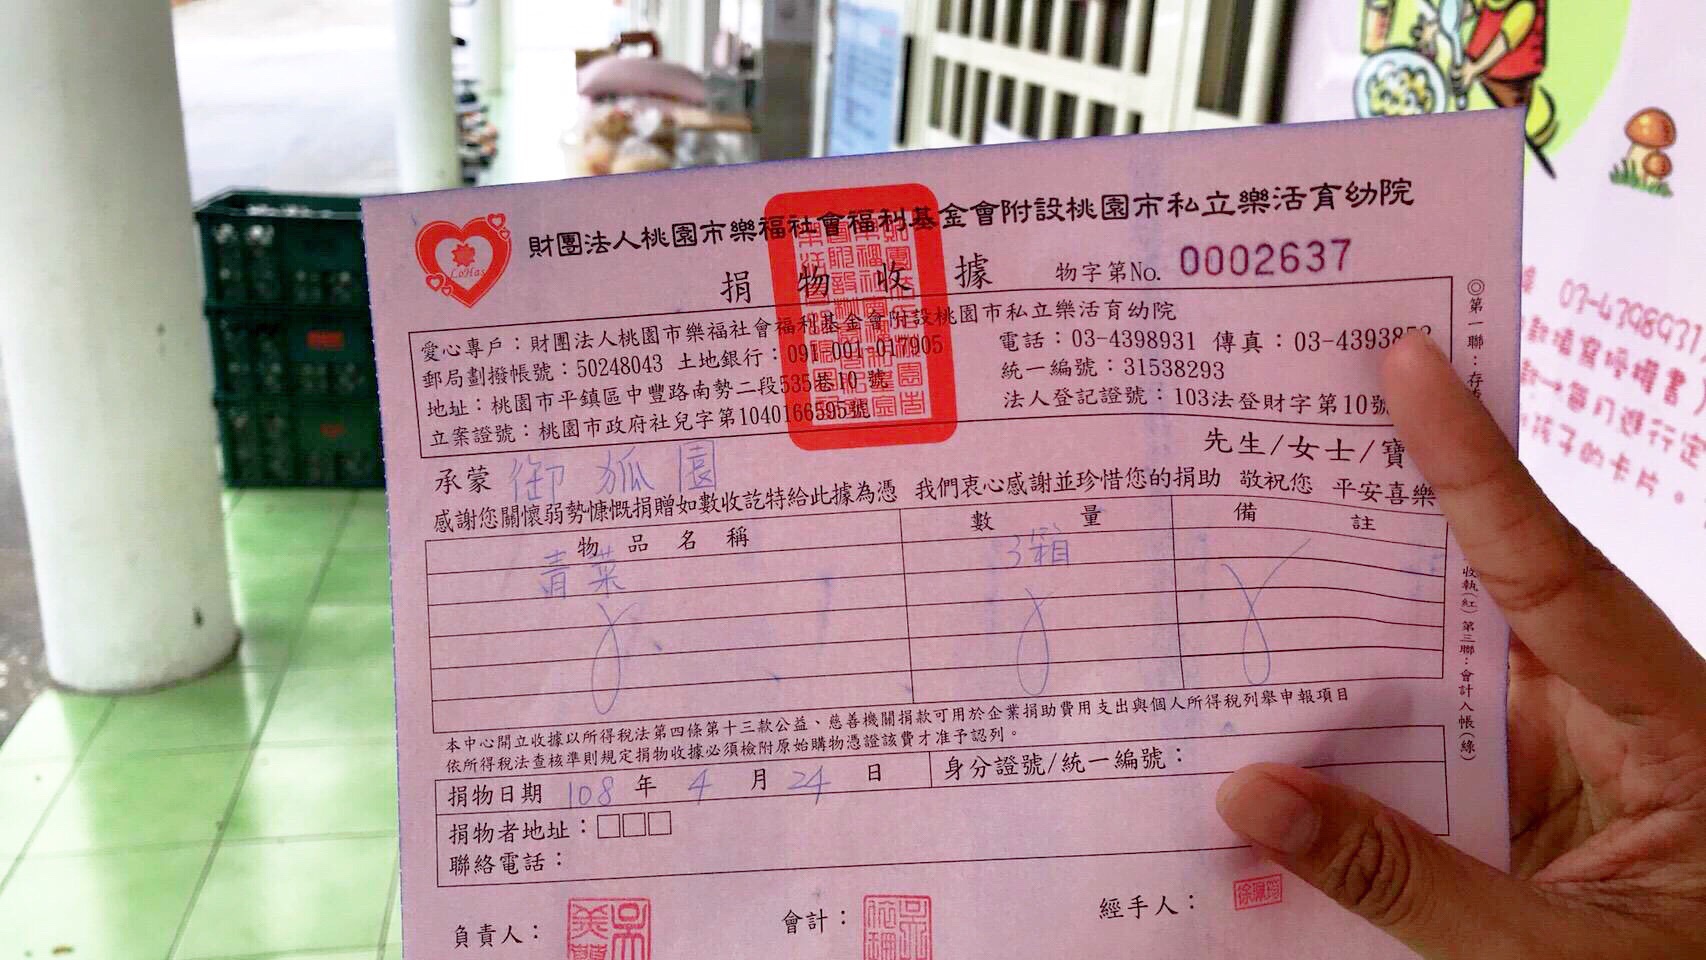 LoHas
財團法人桃園市樂福社會福利基金會附設桃園市私立樂活育幼院
捐物收據
物字第No. 0002637
愛心專戶：財團法人桃園市樂福社會福利基金會附設桃園市私立樂活育幼院
郵局劃撥帳號：50248043 土地銀行：091-001-017905
電話：03-4398931 傳真：03-4393853
地址：桃園市平鎮區中豐路南勢二段535巷10號
統一編號：31538293
立案證號：桃園市政府社兒字第1040166595號
法人登記證號：103法登財字第10號
承蒙 御狐園 先生/女士/寶
感謝您關懷弱勢慷慨捐贈如數收訖特給此據為憑 我們衷心感謝並珍惜您的捐助 敬祝您 平安喜樂
物品名稱 數量 備註
青菜 3箱
本中心開立收據以所得稅法第四條第十三款公益、慈善機關捐款可用於企業捐助費用支出與個人所得稅列舉申報項目
依所得稅法查核準則規定捐物收據必須檢附原始購物憑證該費才准予認列。
捐物日期 108 年 4 月 24 日 身分證號/統一編號：
捐物者地址：
聯絡電話：
負責人： 會計： 經手人：
◎第一聯：存
收執(紅) 第三聯：會計入帳(綠)
03-4398931
款填寫授權書
每月進行定
孩子的卡片。